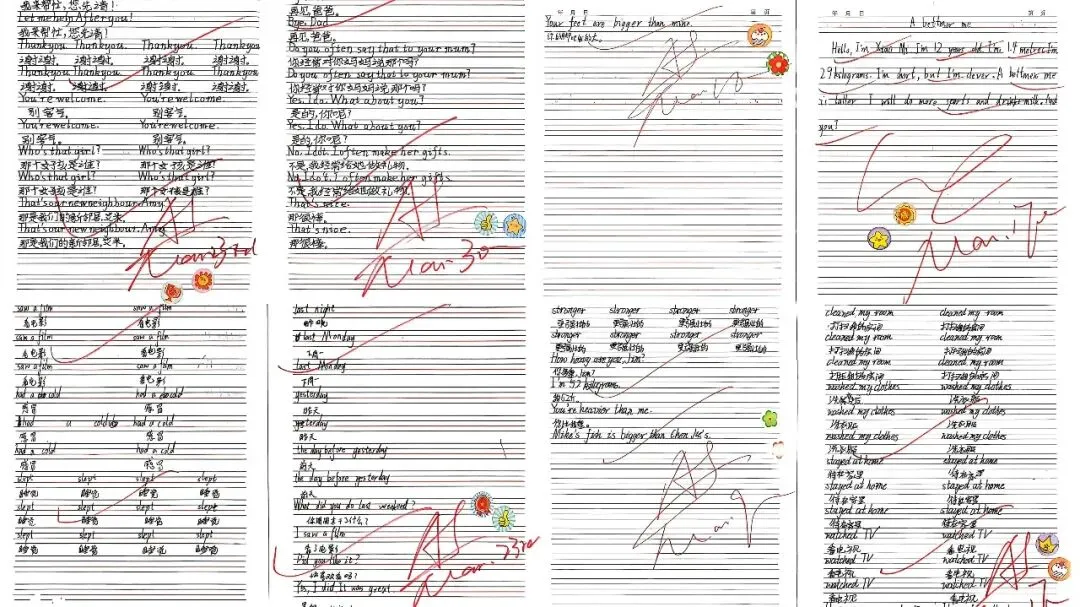 我来帮忙，您先请！
Let me help. After you!
我来帮忙，您先请！
Thank you. Thank you. Thank you. Thank you
谢谢. 谢谢. 谢谢. 谢谢.
Thank you. Thank you. Thank you. Thank you
谢谢. 谢谢. 谢谢. 谢谢.
You're welcome. You're welcome.
别客气。 别客气。
You're welcome. You're welcome.
别客气。 别客气。
Who's that girl? Who's that girl?
那个女孩是谁？ 那个女孩是谁？
Who's that girl? Who's that girl?
那个女孩是谁？ 那个女孩是谁？
That's our new neighbour. Amy.
那是我们的新邻居,艾米。
That's our new neighbour. Amy
那是我们的新邻居,艾米。
再见爸爸。
Bye, Dad
再见爸爸。
Do you often say that to your mum?
你经常对你妈妈说那个吗？
Do you often say that to your mum?
你经常对你妈妈说那个吗？
Yes, I do. What about you?
是的,你呢?
Yes, I do. What about you?
是的,你呢?
I often make her gifts.
不是,我经常给她做礼物。
I often make her gifts.
不是,我经常给她做礼物.
That's nice.
那很棒。
That's nice.
那很棒。
Your feet are bigger than mine.
年 月 日 第 页
A bettmer me
Hello, I'm Xiao I'm 12 years old I'm 1.4 metres I'm
29 kilograms. I'm but I'm clever. A bettmer me
is taller I will do more sports and drink milk. And
you?
saw a film saw a film
看电影 看电影
saw a film saw a film
看电影 看电影
saw a film saw a film
看电影 看电影
had a cold had a cold
感冒 感冒
had a cold had a cold
感冒 感冒
had a cold had a cold
感冒 感冒
slept slept slept slept
睡觉 睡觉 睡觉 睡觉
slept slept slept slept
睡觉 睡觉 睡觉 睡觉
slept slept slept slept
睡觉 睡觉 睡觉 睡觉
last night
昨晚
last Monday
last Monday
yesterday
昨天
yesterday
昨天
the day before yesterday
前天
the day before yesterday
前天
What did you do last weekend?
I saw a film
看了电影
Did you like it?
你喜欢它吗?
Yes, I did It was great
stronger stronger stronger stronger
更强壮的 更强壮的 更强壮的 更强壮的
stronger stronger stronger stronger
更强壮的 更强壮的 更强壮的 更强壮的
How heavy are you, Jim?
I'm 52 kilograms.
You're heavier than me.
Mike's fish is bigger than Chen Jie's.
cleaned my room cleaned my room
打扫我的房间 打扫我的房间
cleaned my room cleaned my room
打扫我的房间 打扫我的房间
cleaned my room cleaned my room
打扫我的房间 打扫我的房间
washed my clothes washed my clothes
洗衣服 洗衣服
washed my clothes washed my clothes
洗衣服 洗衣服
washed my clothes washed my clothes
洗衣服 洗衣服
stayed at home stayed at home
待在家里 待在家里
stayed at home stayed at home
待在家里 待在家里
stayed at home stayed at home
待在家里 待在家里
watched TV watched TV
看电视 看电视
watched TV watched TV
看电视 看电视
watched TV watched TV
看电视 看电视